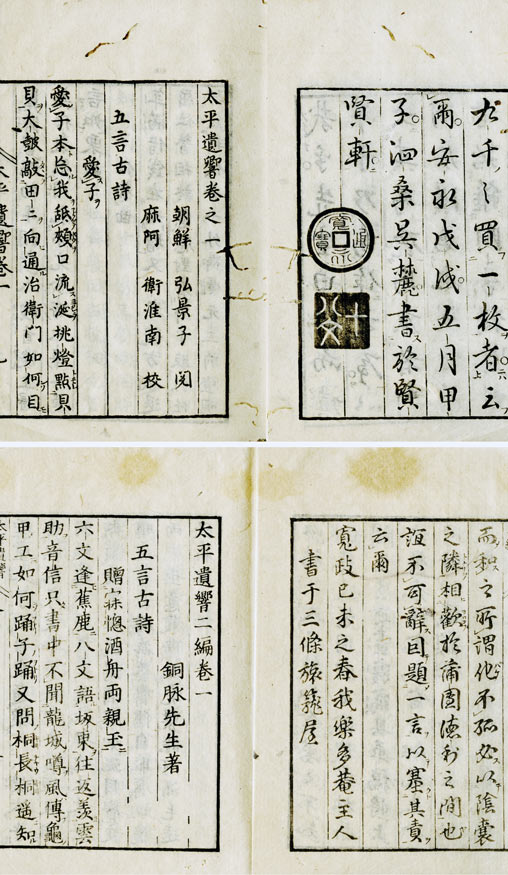 買一枚者云
爾安永戊戌五月甲
子泗桑呉麓書於賢
賢軒
寛永通寳
十八文
太平遺響巻之一
朝鮮 弘景子 閲
麻阿 衛淮南 校
五言古詩
愛子
愛子本忘我紙頬口流涎挑燈點貝
貝大皷敲田二向通治衛門如何目
太平遺響巻一
而和之所謂他不孤必以陰嚢
之隣相歓於蒲團徳利之間也
誼不可辭因題一言以塞其責
云爾
寛政己未之春我樂多菴主人
書于三條旅篭屋
太平遺響二編巻一
銅脉先生著
五言古詩
贈寐惚酒舟両親玉
六文逢蕉鹿八文語坂東往返羨雲
助音信只書中不聞龍城噂風傳龜
甲工如何踊子踊又問桐長桐遥知
太平遺響